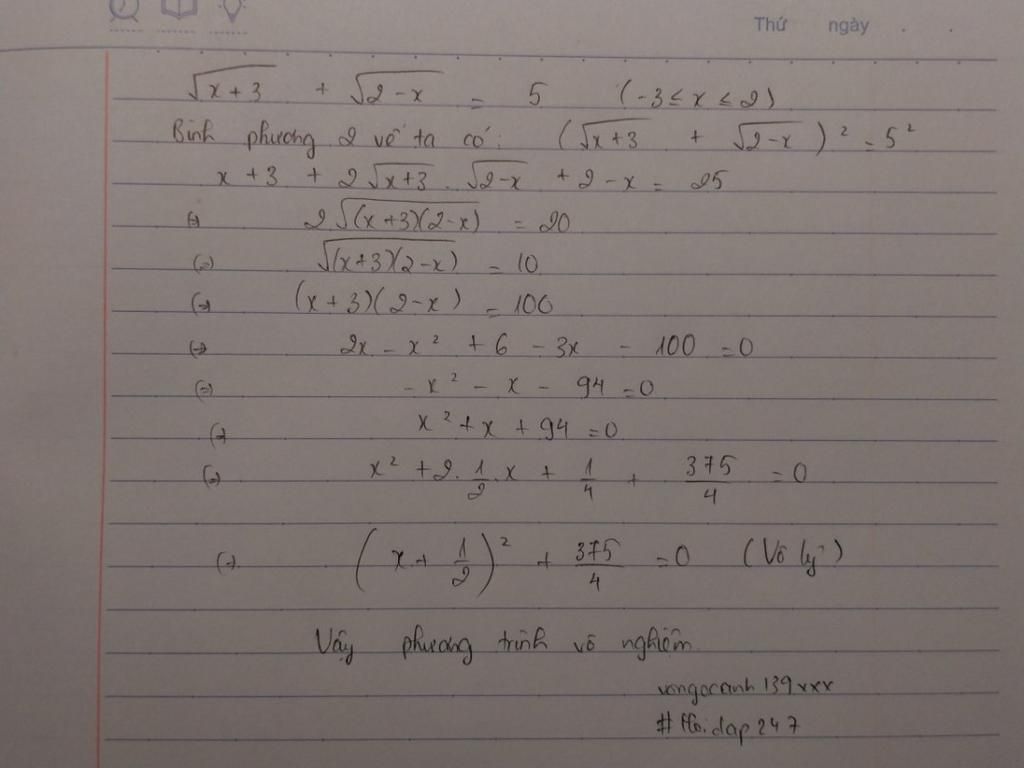 Thứ ngày . .
√(x+3) + √(2-x) = 5 (-3 ≤ x ≤ 2)
Bình phương 2 vế ta có: (√(x+3) + √(2-x))² = 5²
x + 3 + 2√(x+3) . √(2-x) + 2 - x = 25
(=) 2√((x+3)(2-x)) = 20
(=) √((x+3)(2-x)) = 10
(=) (x+3)(2-x) = 100
(=) 2x - x² + 6 - 3x - 100 = 0
(=) - x² - x - 94 = 0
(=) x² + x + 94 = 0
(=) x² + 2. 1/2 .x + 1/4 + 375/4 = 0
(=) (x + 1/2)² + 375/4 = 0 (Vô lý)
Vậy phương trình vô nghiệm.
vongocanh139xxx
#Hoidap247